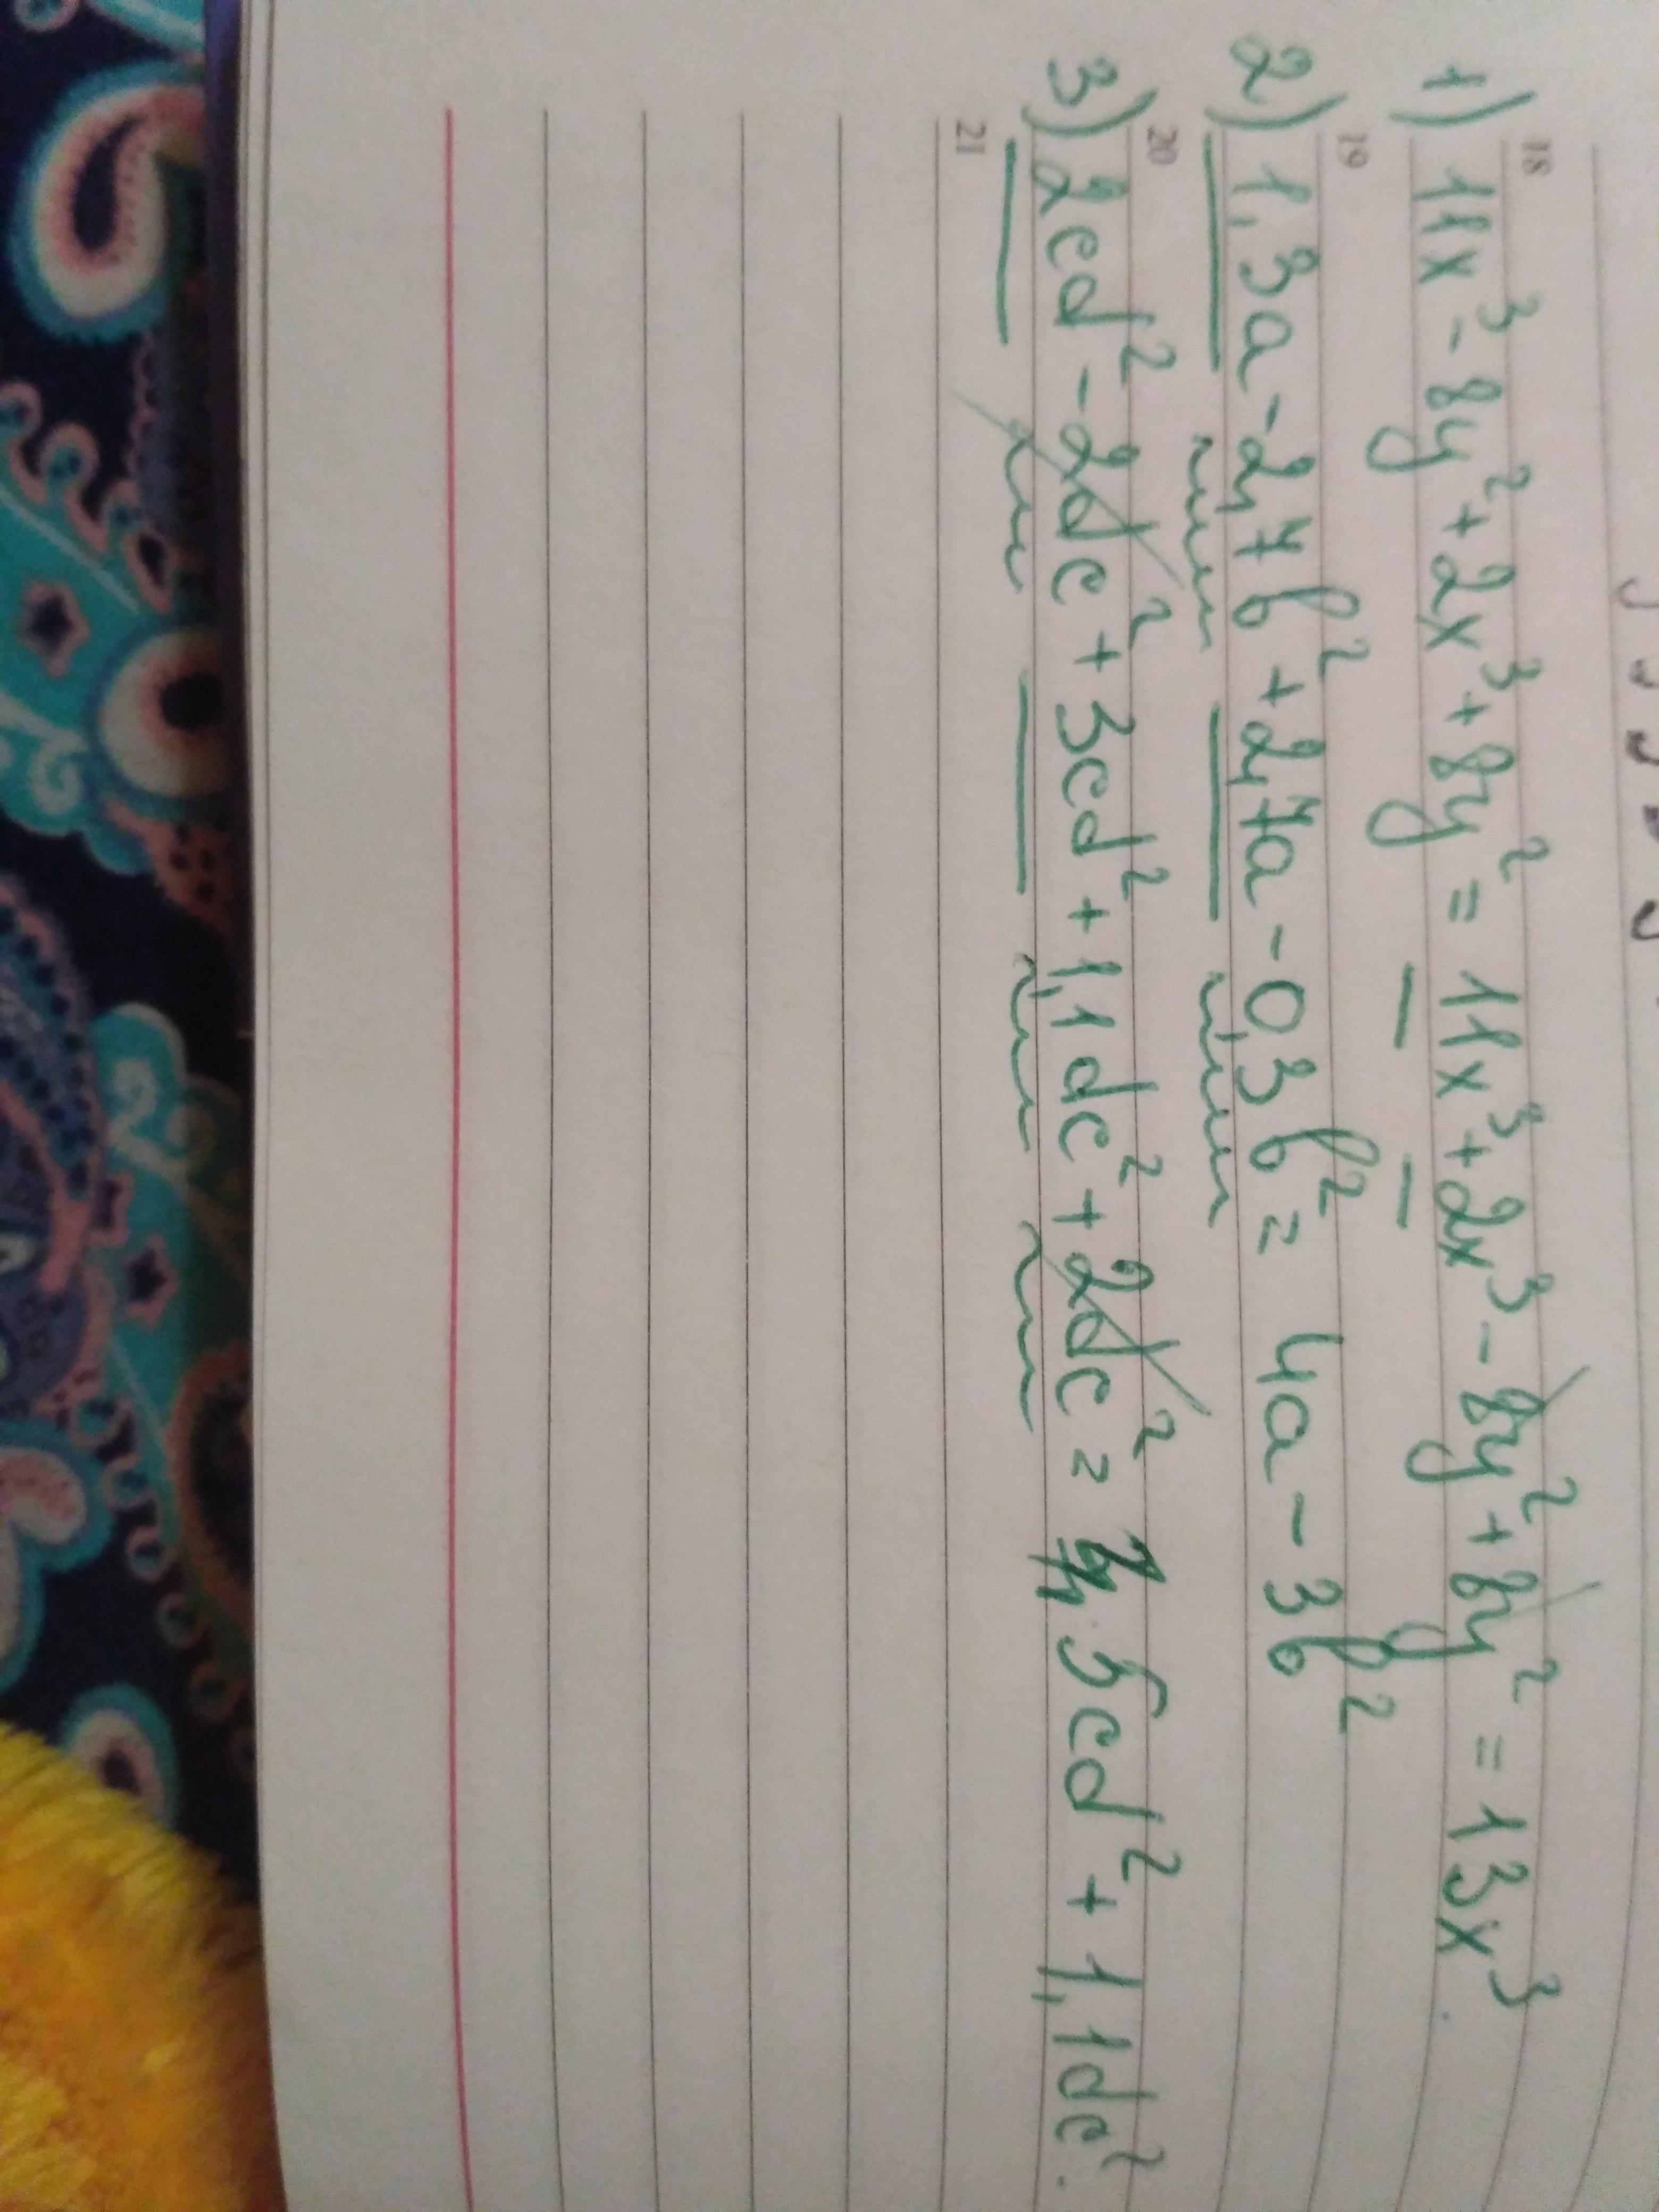 18
1) 11x³ - 8y² + 2x³ + 8y² = 11x³ + 2x³ - 8y² + 8y² = 13x³.
19
2) 1,3a - 2,7b² + 2,7a - 0,3b² = 4a - 3b²
20
3) 2cd² - 2dc² + 3cd² + 1,1dc² + 2dc² = 5cd² + 1,1dc².
21